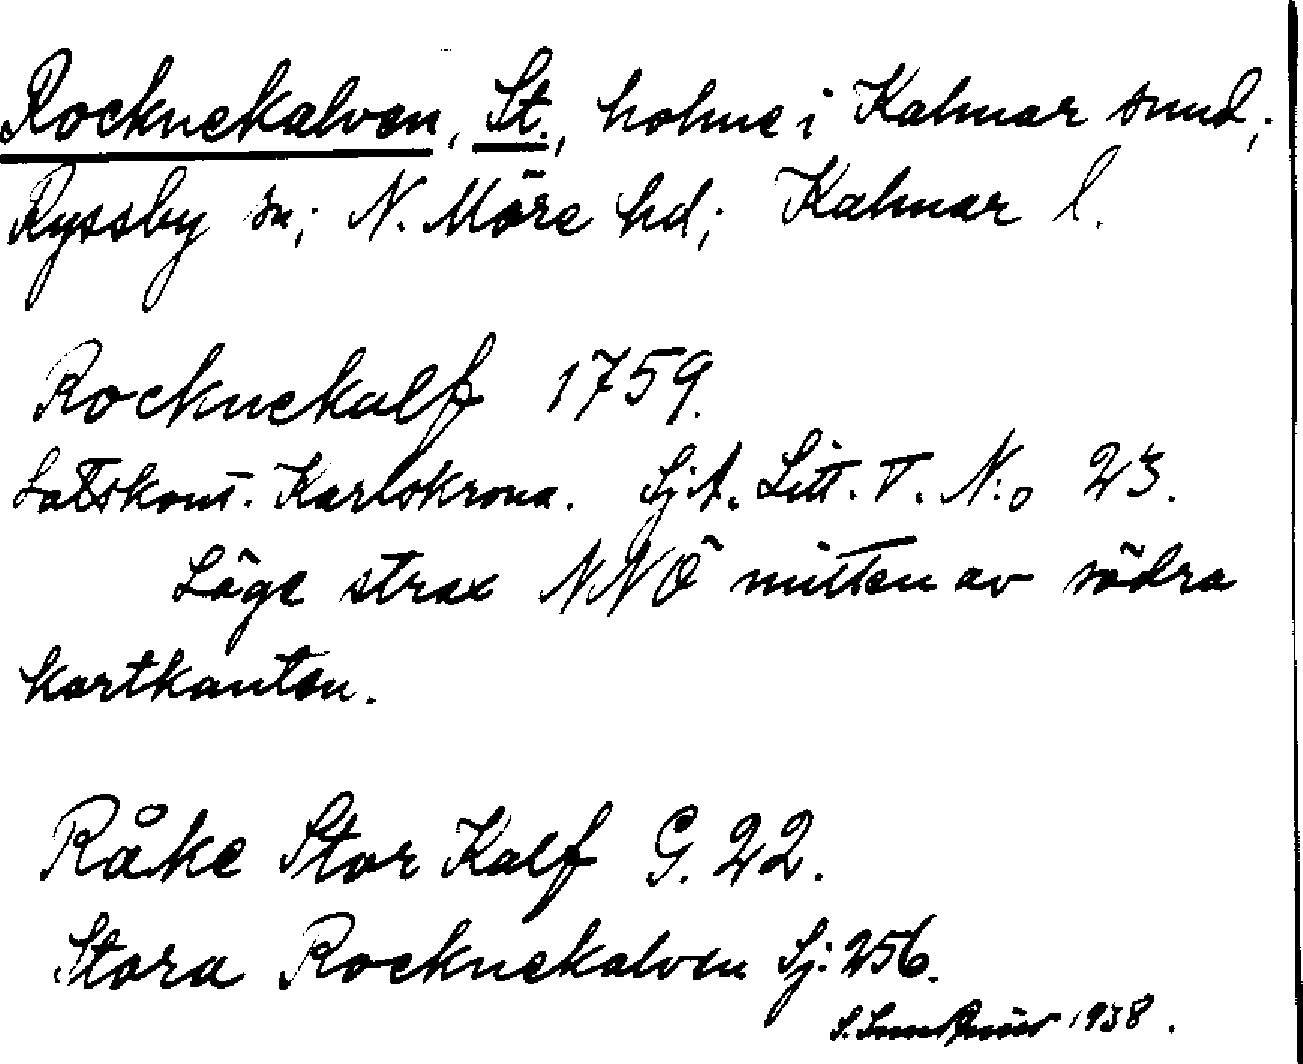 Rocknekalven, St., holme i Kalmar sund;
Ryssby sn; N. Möre hd; Kalmar l.
Rocknekalf 1759.
Lotskont. Karlskrona. Sjk. Litt. V. No 23.
Läge strax NNÖ mitten av södra
kartkanten.
Råke Stor Kalf G. 22.
Stora Rocknekalven Sj: 256.
1938.